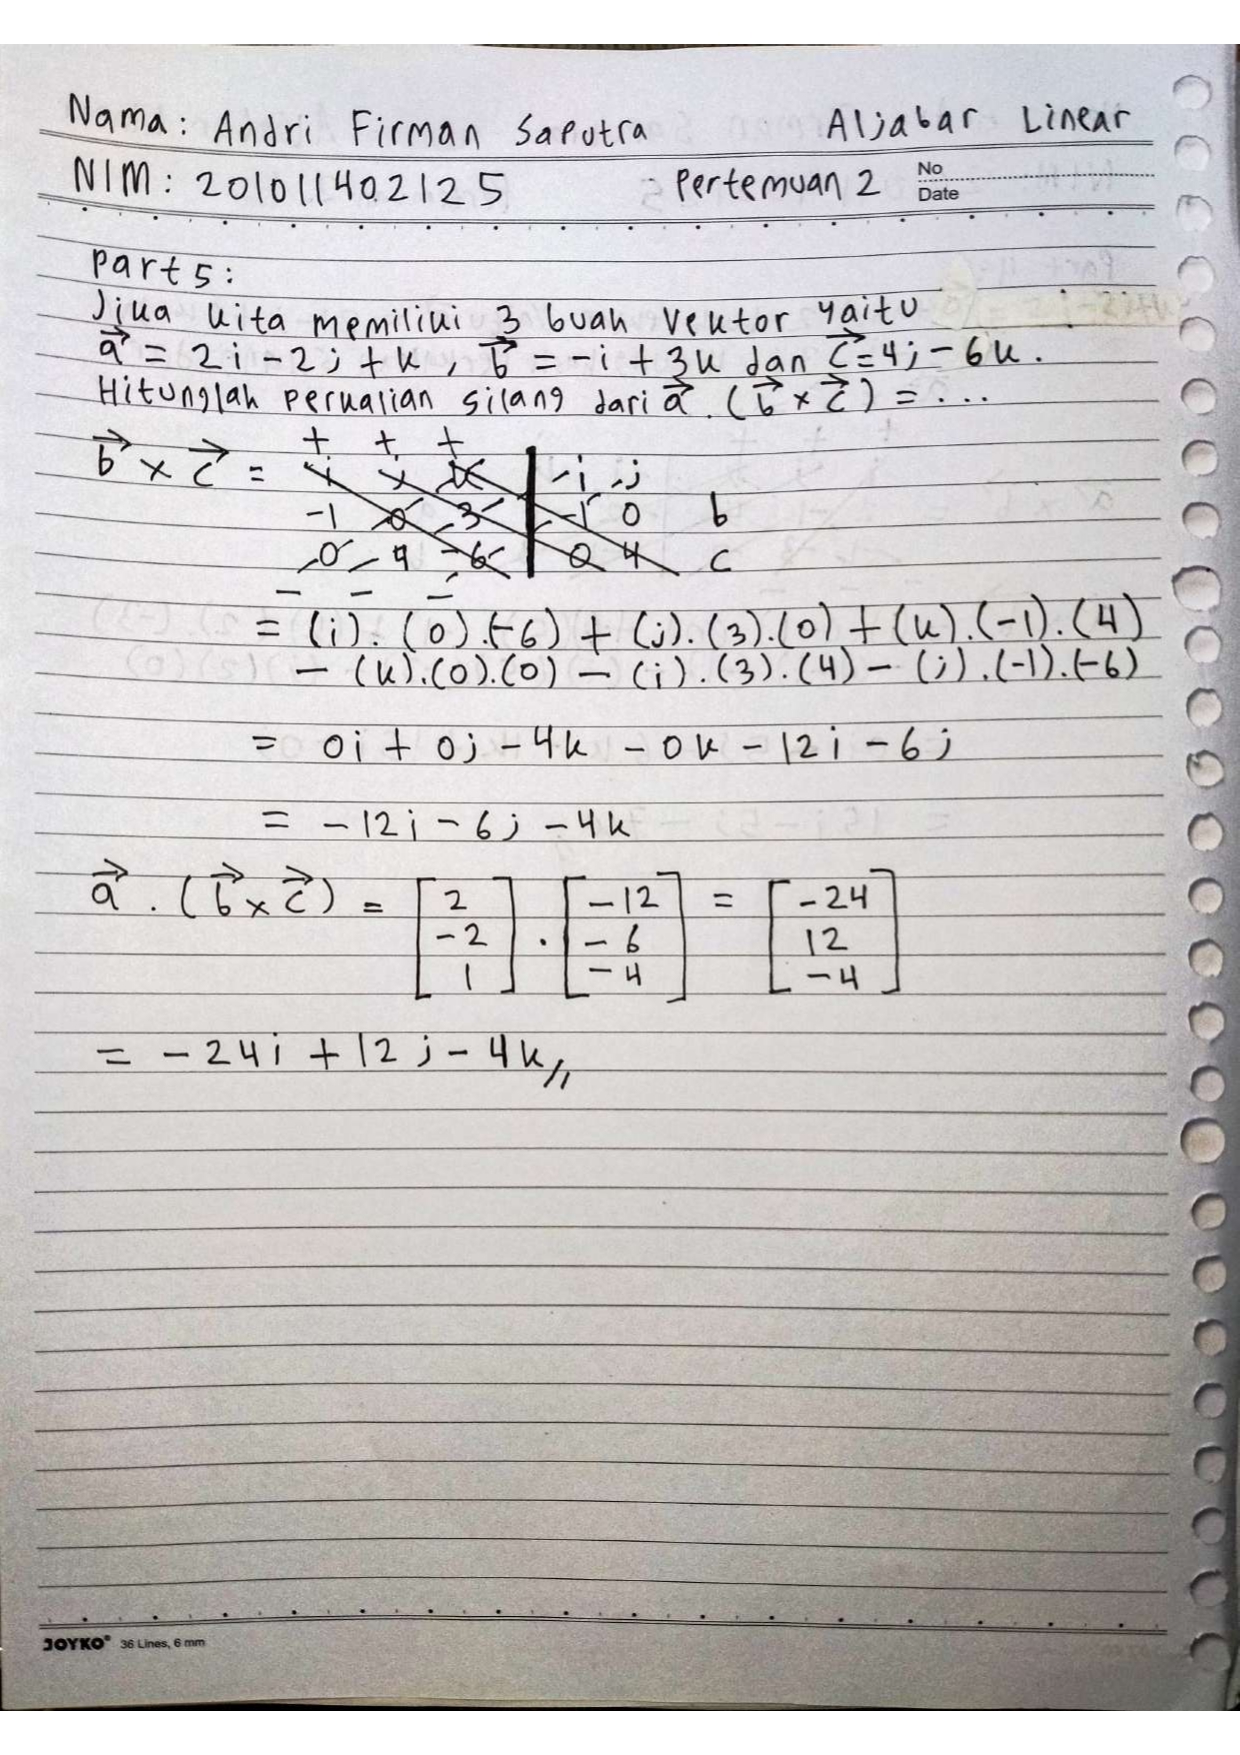 Nama: Andri Firman Saputra Aljabar Linear
NIM: 201011402125 Pertemuan 2 No
Date
Part 5:
Jika kita memiliki 3 buah Vektor yaitu
a⃗ = 2i - 2j + k, b⃗ = -i + 3k dan c⃗ = 4j - 6k.
Hitunglah perkalian silang dari a⃗ . (b⃗ x c⃗) = ...
+ + +
b⃗ x c⃗ = i j k | i j
-1 0 3 | -1 0 b
0 4 -6 | 0 4 c
- - -
= (i).(0).(-6) + (j).(3).(0) + (k).(-1).(4)
- (k).(0).(0) - (i).(3).(4) - (j).(-1).(-6)
= 0i + 0j - 4k - 0k - 12i - 6j
= -12i - 6j - 4k
a⃗ . (b⃗ x c⃗) = [2 -2 1] . [-12 -6 -4] = [-24 12 -4]
= -24i + 12j - 4k //
JOYKO® 36 Lines, 6 mm